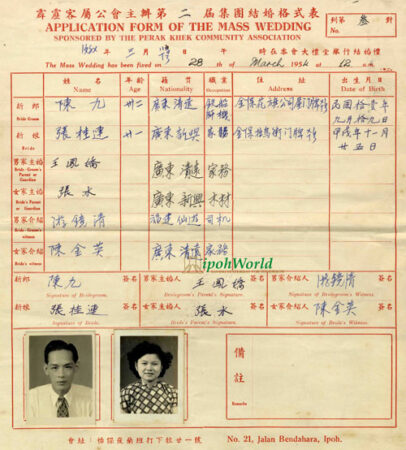 霹靂客屬公會主辦第二屆集團結婚格式表
APPLICATION FORM OF THE MASS WEDDING
SPONSORED BY THE PERAK KHEK COMMUNITY ASSOCIATION
列第 叁 號
No.
午 時在本會大禮堂舉行結婚禮
The Mass Wedding has been fixed on 28th of March 1954 at 12
姓名 年齡 籍貫 職業 住址 出生月日
Name Age Nationality Occupation Address Date of Birth
新郎 陳九 卅二 廣東清遠
Bride Groom
新娘 張桂連 廿一 廣東新興 家務
Bride
男家主婚 王鳳橋 廣東清遠 家務
Bride-Groom's Parent or Guardian
女家主婚 張水 廣東新興 木材
Bride's Parent or Guardian
男家介紹 游鏡清 福建仙遊 司机
Bride-Groom's witness
女家介紹 陳金英 廣東清遠 家務
Bride's witness
ipohWorld
新郎 陳九 簽名 男家主婚人 王鳳橋 簽名 男家介紹人 游鏡清 簽名
Signature of Bridegroom. Bridegroom's Parent's Signature. Signature of Bridegroom's Witness.
新娘 張桂連 簽名 女家主婚人 張水 簽名 女家介紹人 陳金英 簽名
Signature of Bride. Bride's Parent's Signature. Signature of Bride's Witness.
備註
Remarks
會址：怡保夜藥班打下拉廿一號 No. 21, Jalan Bendahara, Ipoh.